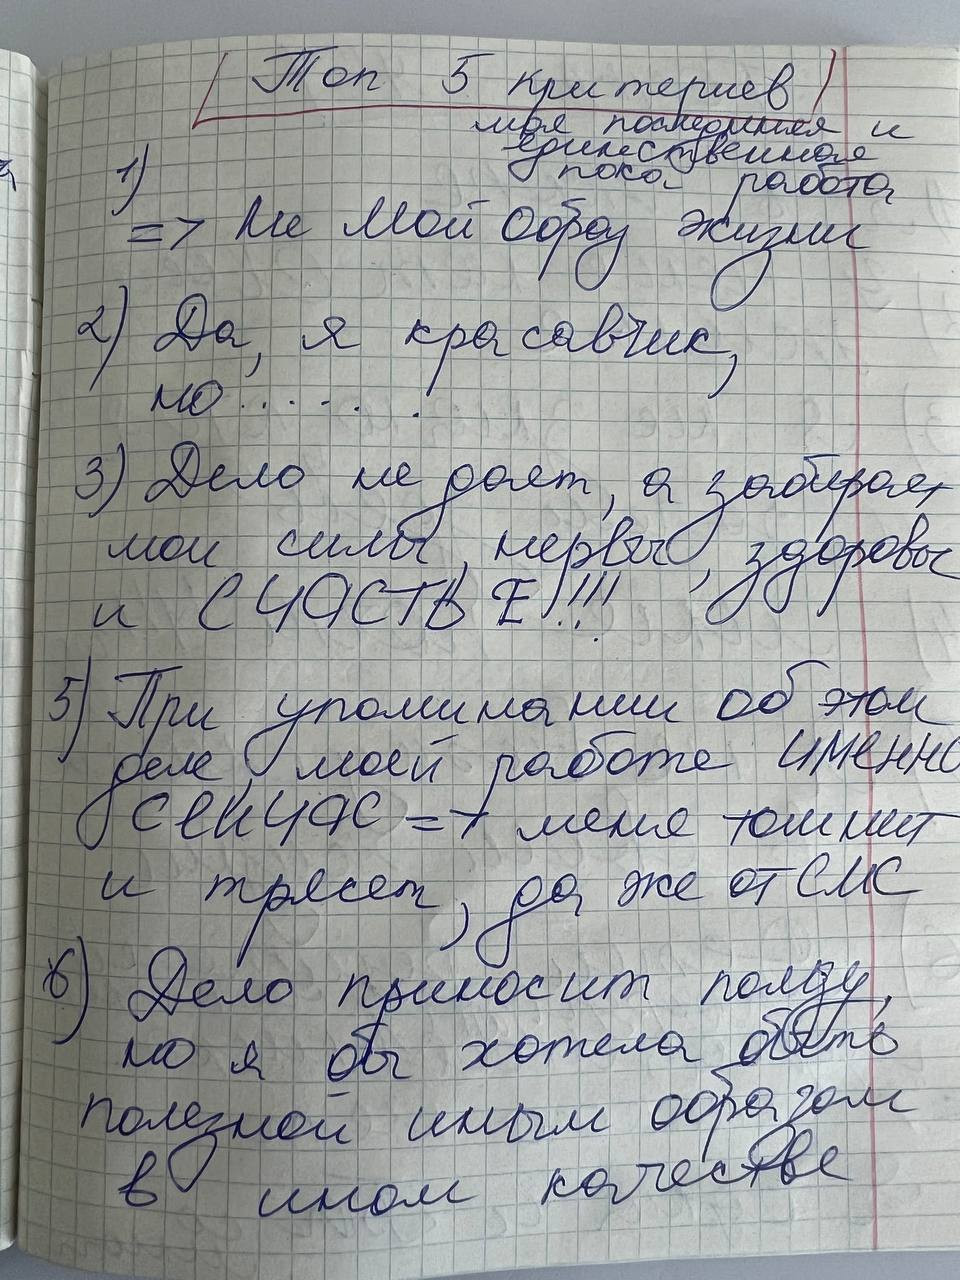 Топ 5 критериев
моя последняя и
единственная
пока работа
1)
=> Не мой образ жизни
2) Да, я красавчик,
но......
3) Дело не дает, а забирает
мои силы, нервы, здоровье
и СЧАСТЬЕ!!!
5) При упоминании об этом
деле, моей работе ИМЕННО
СЕЙЧАС => меня тошнит
и трясет, да же от СМС
6) Дело приносит ползу,
но я бы хотела быть
полезной иным образом
в ином качестве